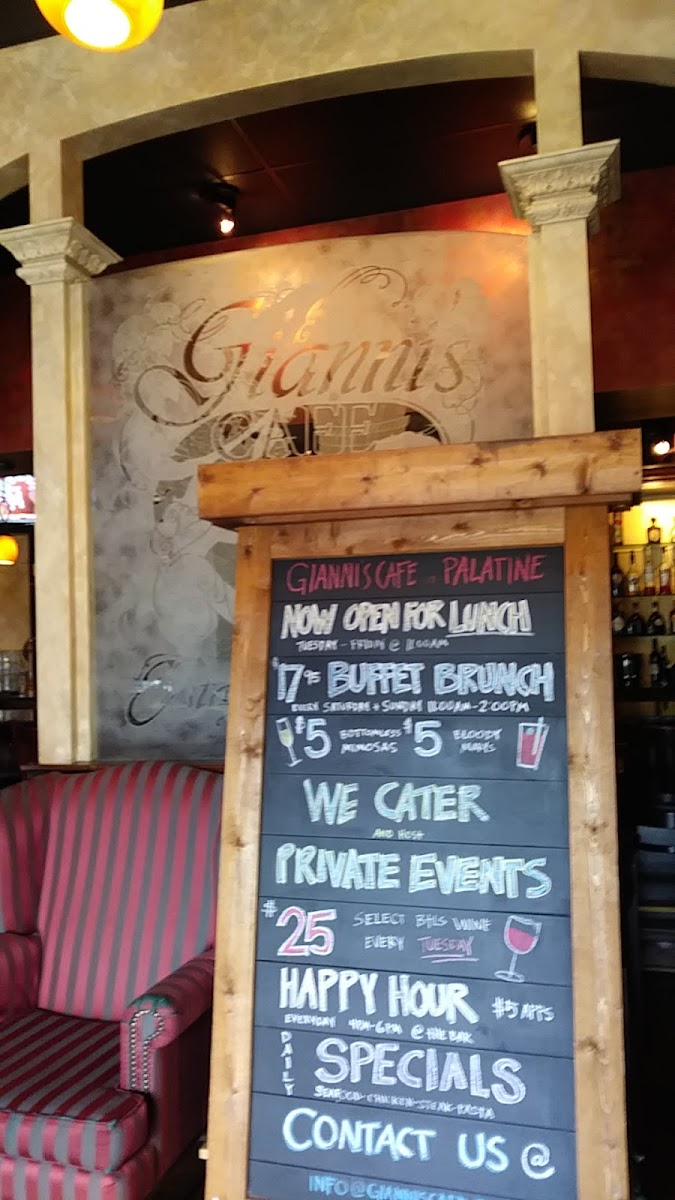 Giannis
CAFE
GIANNIS CAFE . PALATINE
NOW OPEN FOR LUNCH
TUESDAY - FRIDAY @ 11:00AM
$17.95 BUFFET BRUNCH
EVERY SATURDAY + SUNDAY 11:00AM - 2:00PM
$5 BOTTOMLESS MIMOSAS $5 BLOODY MARYS
WE CATER
AND HOST
PRIVATE EVENTS
$25 SELECT BTLS WINE
EVERY TUESDAY
HAPPY HOUR $5 APPS
EVERYDAY 4PM-6PM @ THE BAR
DAILY SPECIALS
SEAFOOD-CHICKEN-STEAK-PASTA
CONTACT US @
INFO@GIANNISCAFE